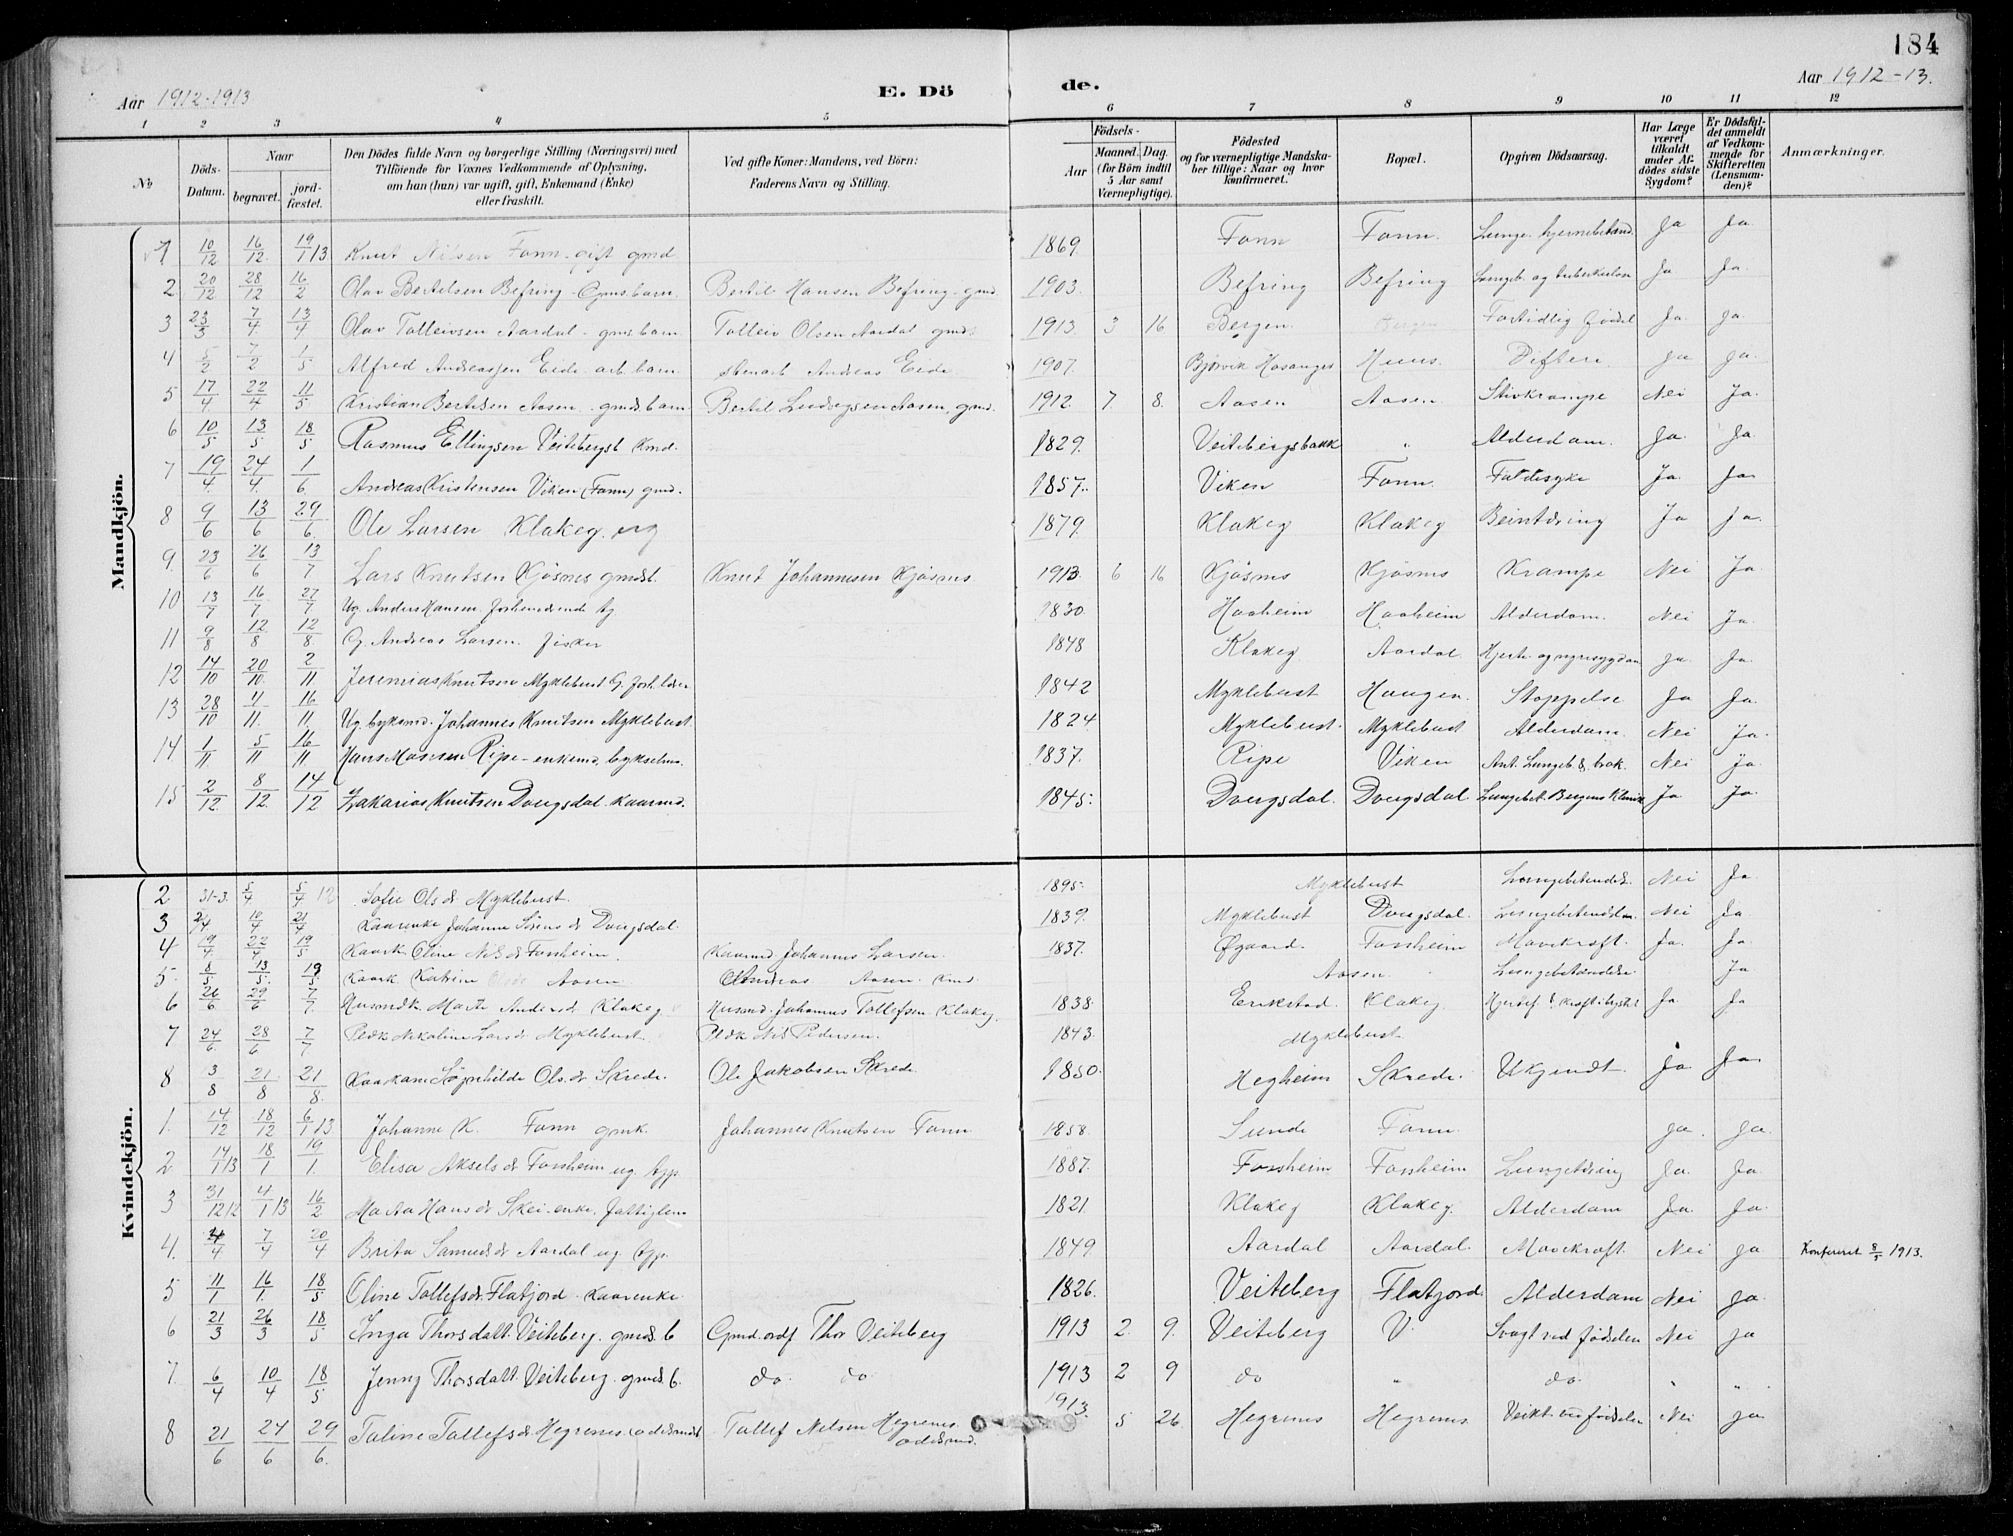 184
Aar 1912-1913
E. Dö
de.
Aar 1912-13.
1 2 3 4 5 6 7 8 9 10 11 12
No
Döds-Datum.
Naar
begravet.
jord-fæstet.
Den Dödes fulde Navn og borgerlige Stilling (Næringsvei) med
Tilföiende for Voxnes Vedkommende af Oplysning,
om han (hun) var ugift, gift, Enkemand (Enke)
eller fraskilt.
Ved gifte Koner: Mandens, ved Börn:
Faderens Navn og Stilling.
Födsels-
Aar
Maaned. Dag.
(for Börn indtil
5 Aar samt
Værnepligtige).
Födested
og for værnepligtige Mandska-
ber tillige: Naar og hvor
konfirmeret.
Bopæl.
Opgiven Dödsaarsag.
Har Læge
været
tilkaldt
under Af-
dödes sidste
Sygdom?
Er Dödsfal-
det anmeldt
af Vedkom-
mende for
Skifteretten
(Lensman-
den)?
Anmærkninger.
Mandkjön.
1 10/12 16/12 19/1 13 Knut Nilsen Fonn gift gmd 1869. Fonn Fonn. Lunge hjernebetænd. Ja Ja.
2 20/12 28/12 16/2 Olav Bertelsen Befring - Gmsbarn. Bertil Hansen Befring gmd. 1903. Befring Befring Lungeb. og tuberkulose Ja Ja.
3 23/3 7/4 13/4 Olav Tolleivsen Aardal - gmdsbarn. Tolleiv Olsen Aardal gmds 1913. 3 16 Bergen. Bergen Fortidlig födsel Ja. Ja.
4 5/2 7/2 1/5 Alfred Andreassen Eide arb. barn Stenarb. Andreas Eide 1907. Bjørvik Hosanger Huus. Difteri Ja Ja.
5 17/4 22/4 11/5 Kristian Bertilsen Aasen. gmdsbarn Bertil Ludvigsen Aasen, gmd. 1912. 7 8. Aasen Aasen. Stivkrampe Nei Ja.
6 10/5 13/5 18/5 Rasmus Ellingsen Veitebergsb. Kmd. 1829. Veitebergsbakk " Alderdom. Ja. Ja.
7 19/4 24/4 1/6 Andreas Kristensen Viken (Fonn) gmd. 1857. Viken Fonn. Faldesyke Ja. Ja
8 9/6 13/6 29/6 Ole Larsen Klakeg. ug 1879. Klakeg Klakeg Beintæring Ja Ja.
9. 23/6 26/6 13/7 Lars Knutsen Kjösnes gmdsb. Knut Johannesen Kjösnes 1913. 6 16 Kjösnes Kjösnes Krampe Nei Ja.
10 13/7 16/7 27/7 Ug. Anders Hansen. forhenværende 1830 Haaheim Haaheim Alderdom. Nei Ja.
11 9/8 12/8 12/8 G. Andreas Larsen. fisker 1848 Klakeg Aardal. Hjerte og nyresygdom Ja. Ja.
12 14/10 20/10 2/11 Jeremias Knutsen Myklebust G. 1842 Myklebust Haugen. Stoppelse Ja Ja.
13 28/10 4/11. 16/11. Ug. bygsmd. Johannes Knutsen Myklebust 1824 Myklebust. Myklebust Alderdom. Nei Ja.
14 1/11 5/11 16/11. Hans Monsen Ripe - enkemd. bykselm. 1837. Ripe Viken Ant. Lungeb. & brok. Nei Ja.
15 2/12. 8/12. 14/12 Zakarias Knutsen Dvergsdal. kaarmd. 1845. Dvergsdal. Dvergsdal Lungebet. Bergens Klinik Ja Ja.
Kvindekjön.
2 31-3. 5/4 5/4 12 Sofie Olsdr Myklebust. 1895. Myklebust Lungebetændels. Nei Ja
3 2/4 10/4 21/4 Kaarenke Johanne Sörensdr Dvergsdal. 1839. Myklebust Dvergsdal. Lungebetændelse. Nei Ja
4 19/4. 22/4 19/5 Kaark Oline Nilsdr Forsheim. Kaarmd Johannes Larsen. 1837. Øgaard. Forsheim Mavekræft. Ja. Ja.
5. 8/5 13/5. 19/5 Kaark Katrine Aasen Andreas Aasen kmd. Aasen. Lungebetændelse. Ja
6 26/6 29/6 7/7. Husmdk. Marte Andersdr Klakeg Husmd. Johannes Tollefsen Klakeg. 1838. Erikstad. Klakeg. Hjertef. Ja. Ja
7 24/6. 28/6 7/7 Nikoline Larsdr Myklebust. Nils Pedersen. 1843. Myklebust
8 3/8 21/8 21/8. Kaarkone Söfnhilde Olsdr Skrede. Ole Jakobsen Skrede 1850. Hegheim Skrede. Ukjendt. Ja. Ja.
1. 14/12 18/12 6/1 13 Johanne K. Fonn gmk. Johannes Knutsen Fonn 1858. Sunde Fonn. Ja. Ja.
2. 14/1 13 18/1 19/1. Elisa Akselsdr Forsheim ug. 1887. Forsheim Forsheim Lungetæring Ja. Ja.
3 31/12 12 4/1 13 16/2 Marta Hansdr Skei. enke. fattiglem 1821 Klakeg Klakeg. Alderdom Ja. Ja.
4. 4/4 7/4 20/4 Brita Samuelsdr Aardal ug. 1849. Aardal Aardal. Mavekræft. Nei Ja Konfereret 8/5 1913.
5 11/1 16/1. 18/5 Oline Tollefsdr. Flatjord. Kaarenke. 1826. Veiteberg Flatjord. Alderdom Nei Ja.
6 21/3 26/3 18/5 Inga Thorsdatt. Veiteberg. gmds. b Gmd. ordf Thor Veiteberg 1913 2. 9. Veiteberg V. Svagt ved födselen Nei Ja
7. 6/4 10/4 18/5 Jenny Thorsdatt. Veiteberg. gmds. b. do. do. 1913 2 9 do " do. " "
8 21/6 24/6 29/6. Taline Tollefsdr Hegrenes. Tollef Nilsen Hegrenes. 1913. 5 26 Hegrenes Hegrenes. Veikt ved födselen Nei Ja